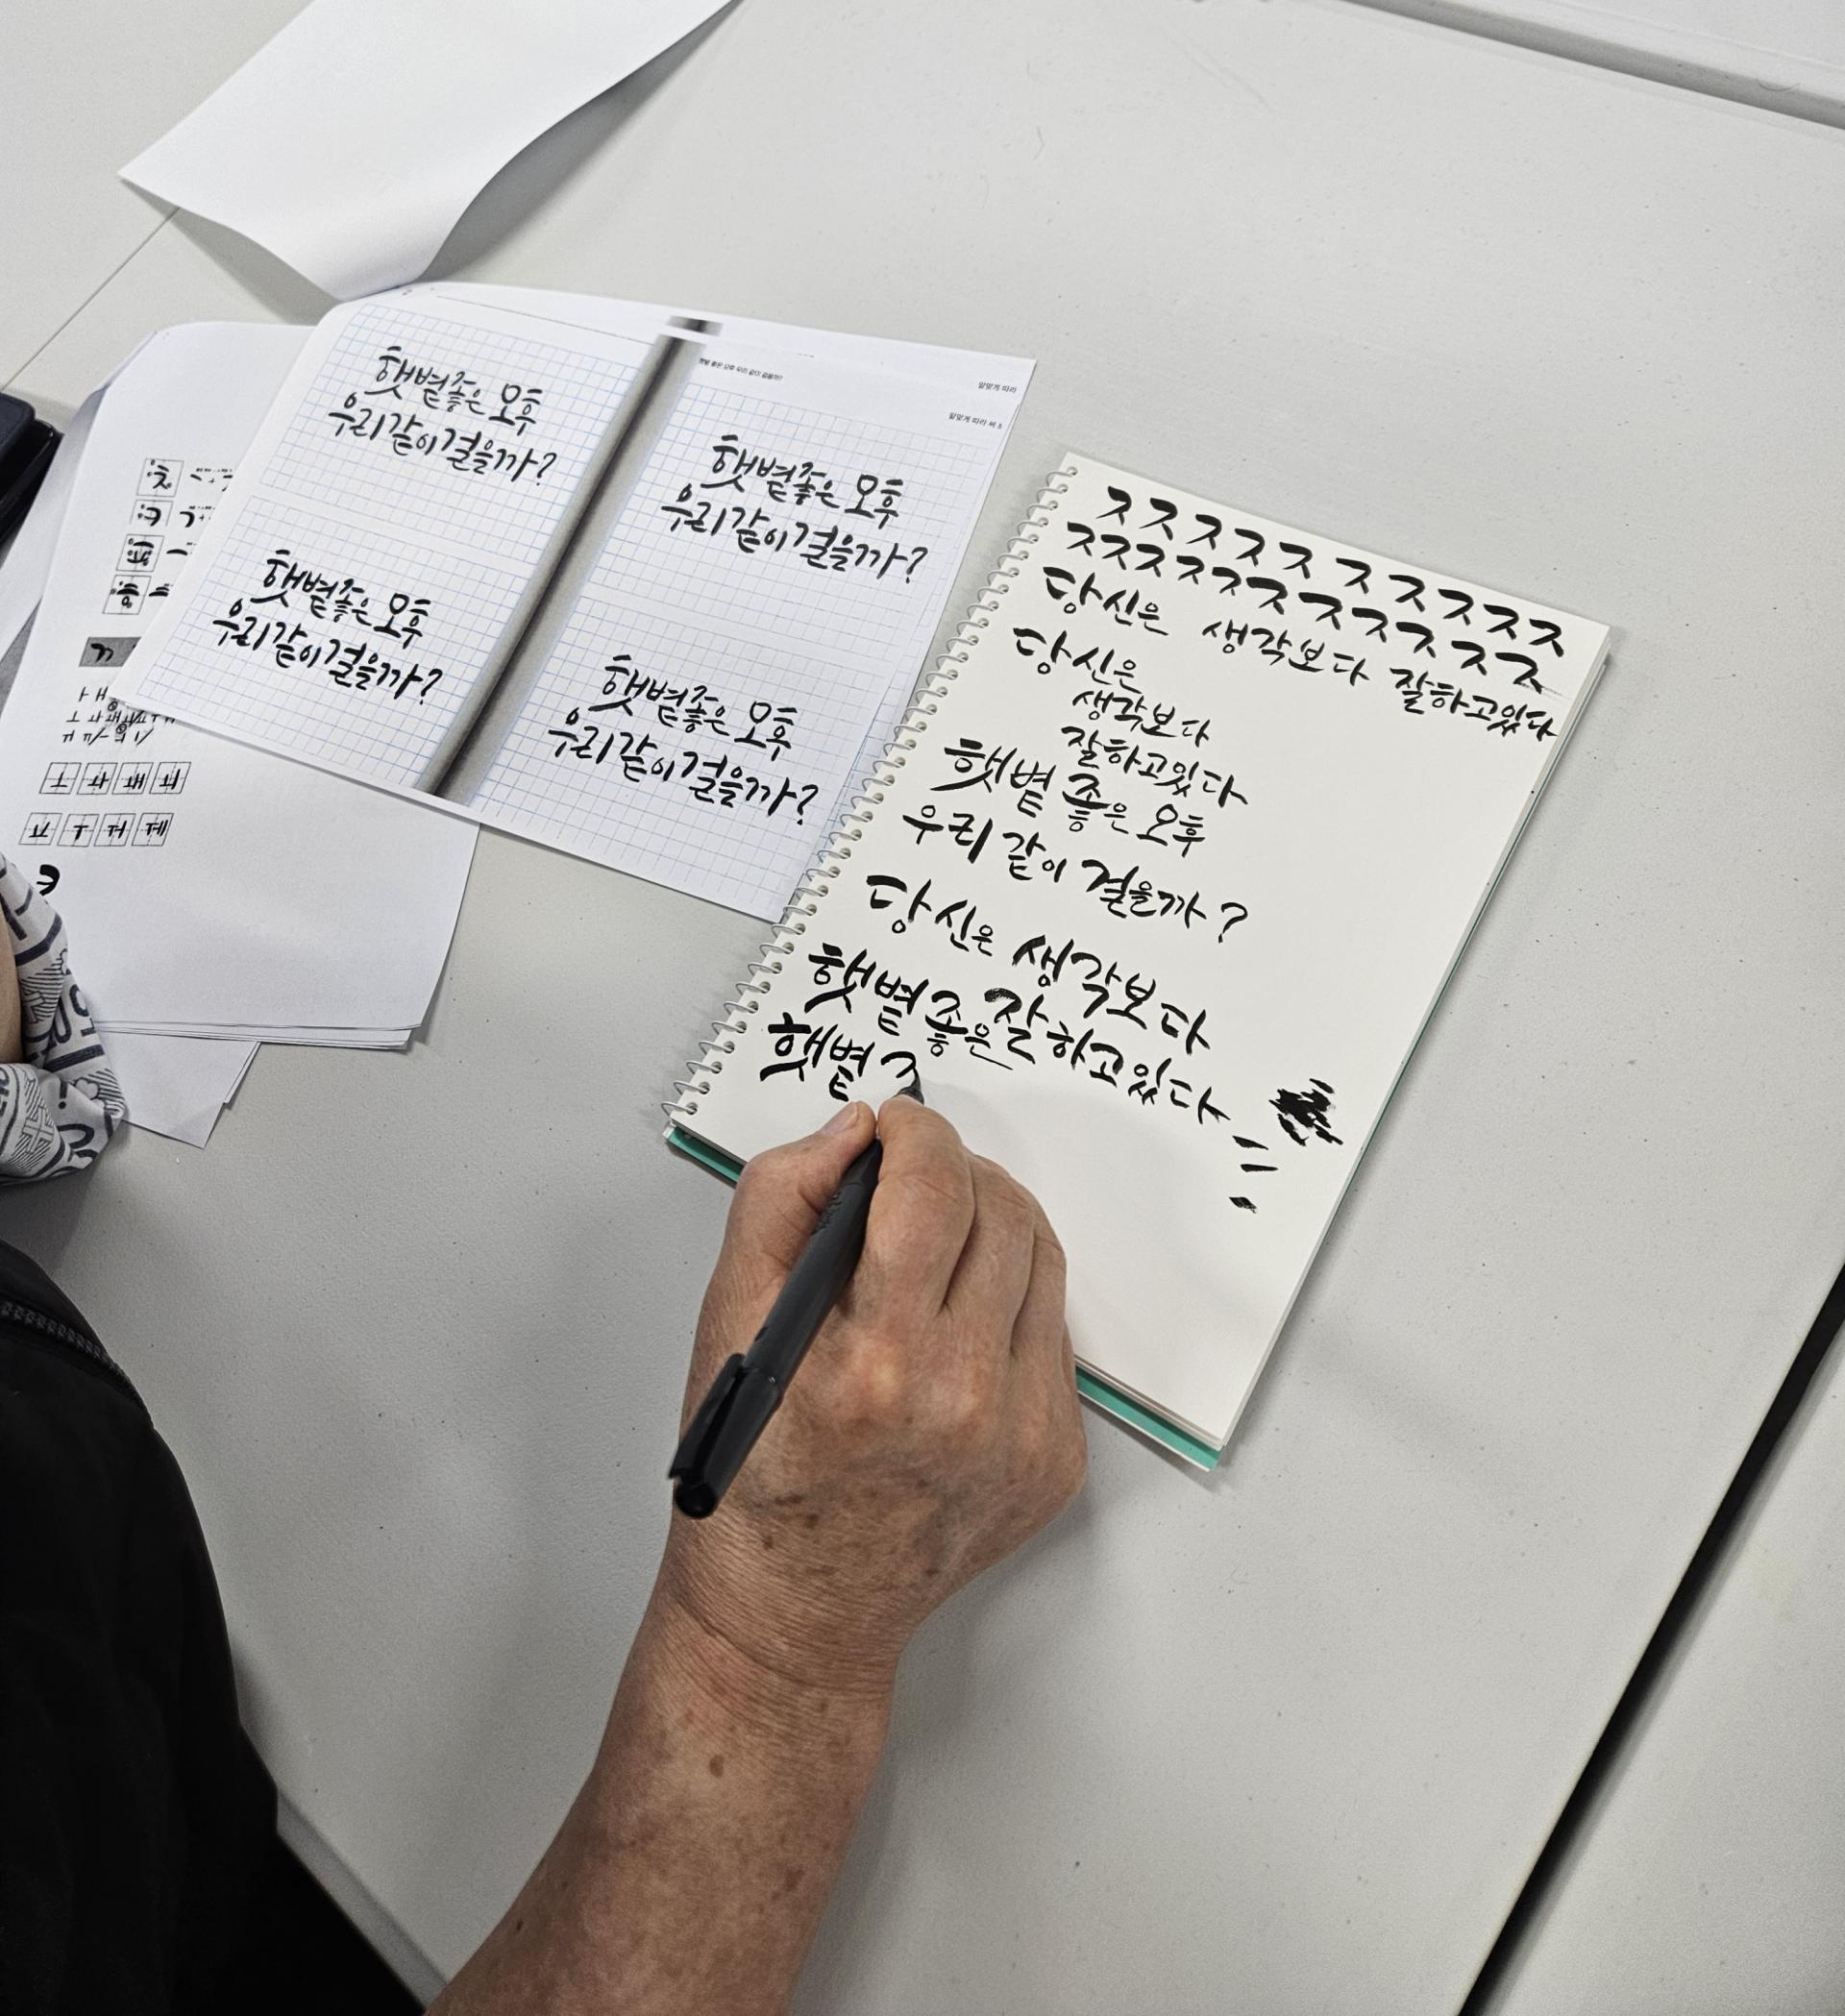 햇볕좋은 오후
우리같이걸을까?
햇볕좋은 오후
우리같이걸을까?
햇볕 좋은 오후 우리 같이 걸을까?
알맞게 따라
알맞게 따라 써 보
햇볕좋은 오후
우리같이걸을까?
햇볕좋은 오후
우리같이걸을까?
ㅈㅈㅈㅈㅈ ㅈㅈㅈㅈㅈ
ㅈㅈㅈㅈㅈㅈㅈㅈㅈㅈㅈ
당신은 생각보다 잘하고있다
당신은
생각보다
잘하고있다
햇볕 좋은 오후
우리 같이 걸을까?
당신은 생각보다
햇볕 좋은 잘하고있다
햇볕 ㅈ